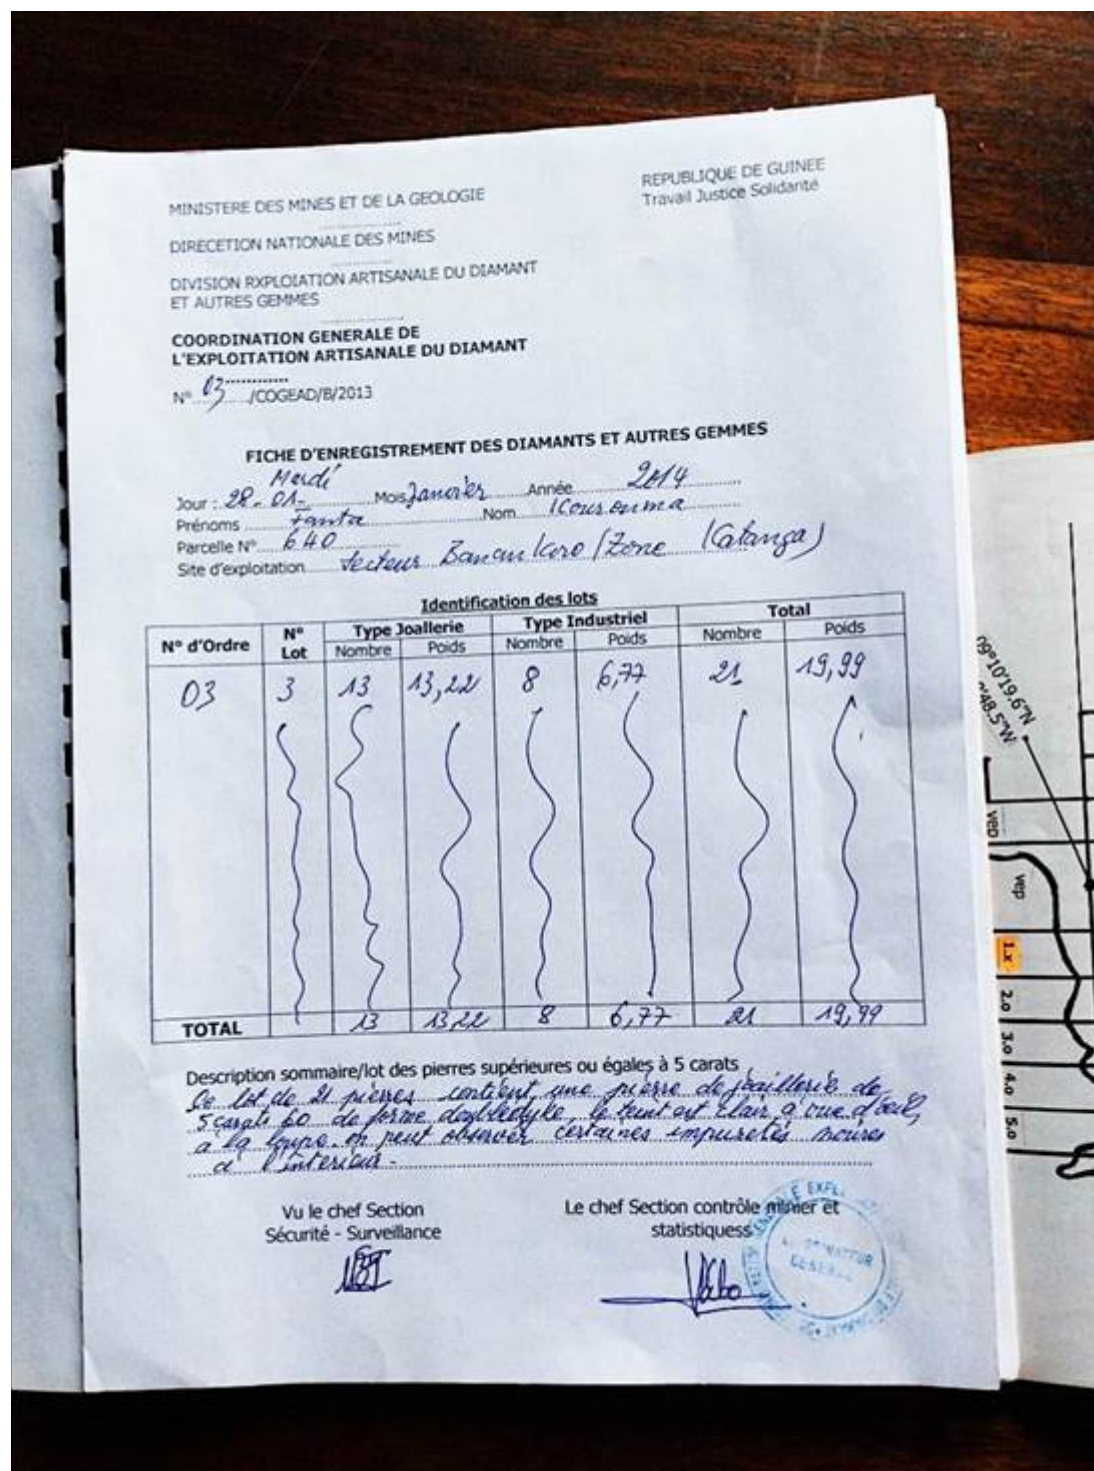 MINISTERE DES MINES ET DE LA GEOLOGIE
REPUBLIQUE DE GUINEE
Travail Justice Solidarité
DIRECETION NATIONALE DES MINES
DIVISION RXPLOIATION ARTISANALE DU DIAMANT
ET AUTRES GEMMES
COORDINATION GENERALE DE
L'EXPLOITATION ARTISANALE DU DIAMANT
N° 03 /COGEAD/B/2013
FICHE D'ENREGISTREMENT DES DIAMANTS ET AUTRES GEMMES
Mardi
Jour : 28-01- Mois Janvier Année 2014
Prénoms Fanta Nom Kourouma
Parcelle N° 640
Site d'exploitation Secteur Banankoro (Zone Katanga)
Identification des lots
N° d'Ordre N° Lot Type Joallerie Type Industriel Total
Nombre Poids Nombre Poids Nombre Poids
03 3 13 13,22 8 6,77 21 19,99
TOTAL 13 13,22 8 6,77 21 19,99
Description sommaire/lot des pierres supérieures ou égales à 5 carats
Ce lot de 21 pierres contient une pierre de joaillerie de
5 carats 60 de forme , le teint est clair à vue d'oeil,
à la loupe on peut observer certaines impuretés noires
à l'intérieur-
Vu le chef Section
Sécurité - Surveillance
Le chef Section contrôle minier et
statistiquess
GENERALE EXPL
GENERAL
09°10'19.6"N
48.5"W
veD
vep
1.x
2.0
3.0
4.0
5.0